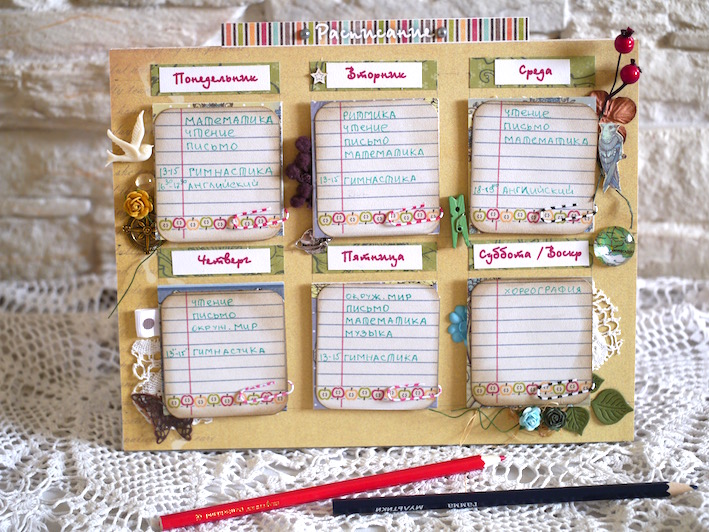 Расписание
Понедельник
МАТЕМАТИКА
ЧТЕНИЕ
ПИСЬМО
13-15 ГИМНАСТИКА
АНГЛИЙСКИЙ
Вторник
РИТМИКА
ЧТЕНИЕ
ПИСЬМО
МАТЕМАТИКА
13-15 ГИМНАСТИКА
Среда
ЧТЕНИЕ
ПИСЬМО
МАТЕМАТИКА
18-15 АНГЛИЙСКИЙ
Четверг
ЧТЕНИЕ
ПИСЬМО
ОКРУЖ. МИР
13-15 ГИМНАСТИКА
Пятница
ОКРУЖ. МИР
ПИСЬМО
МАТЕМАТИКА
МУЗЫКА
13-15 ГИМНАСТИКА
Суббота / Воскр
ХОРЕОГРАФИЯ
ГАММА МУЛЬТИКИ